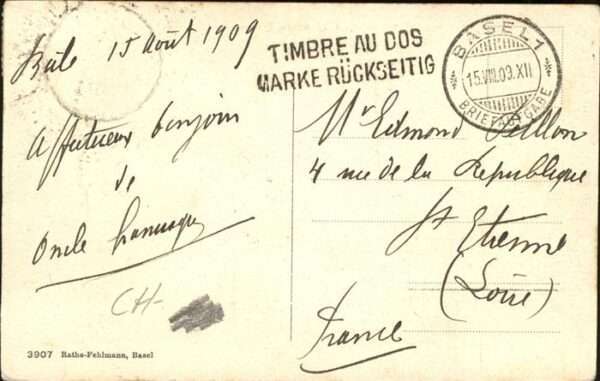 Bâle 15 Août 1909
Affectueux bonjour
de
Oncle
CH-
3907 Rathe-Fehlmann, Basel
TIMBRE AU DOS
MARKE RÜCKSEITIG
BASEL 1
15.VIII.09.XII
BRIEFAUFGABE
Mr Edmond
4 rue de la Republique
St Etienne
(Loire)
France